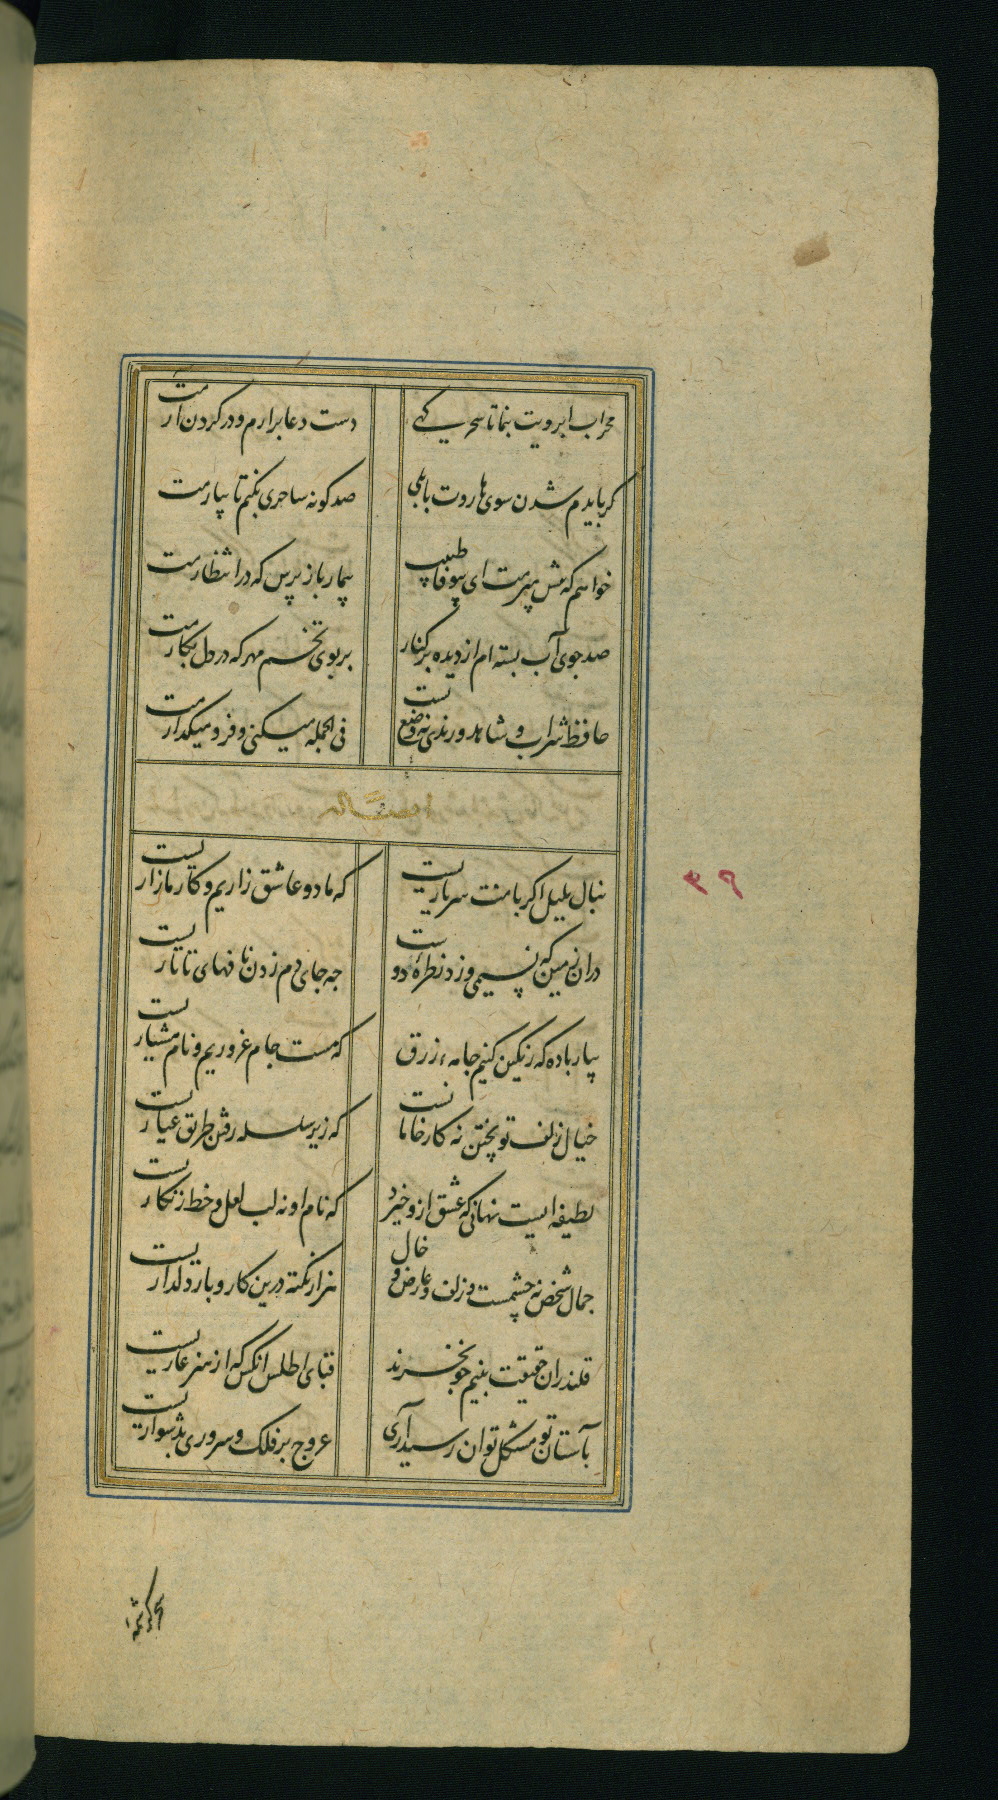 محراب ابرویت بنما تا سحرگهی
دست دعا برارم و در کردن آرمت
کر بایدم شدن سوی هاروت بابلی
صد کونه ساحری بکنم تا بیارمت
خواهم که پیش میرمت ای بیوفا طبیب
بیمار باز پرس که در انتظارمت
صد جوی آب بسته ام از دیده بر کنار
بر بوی تخم مهر که در دل بکارمت
حافظ شراب و شاهد و رندی نه وضع تست
فی الجمله میکنی و فرو میکذارمت
بنال بلبل اکر با منت سر یاریست
که ما دو عاشق زاریم و کار ما زاریست
دران زمین که نسیمی وزد ز طره دوست
چه جای دم زدن نافهای تاتاریست
بیار باده که رنکین کنیم جامه زرق
که مست جام غروریم و نام هشیاریست
خیال زلف تو پختن نه کار خامانست
که زیر سلسله رفتن طریق عیاریست
لطیفه ایست نهانی که عشق ازو خیزد
که نام او نه لب لعل و خط زنکاریست
جمال شخص نه چشمست و زلف و عارض و خال
هزار نکته درین کار و بار دلداریست
قلندران حقیقت بنیم جو نخرند
قبای اطلس انکس که از هنر عاریست
بآستان تو مشکل توان رسید آری
عروج بر فلک و سروری بدشواریست
۳۹